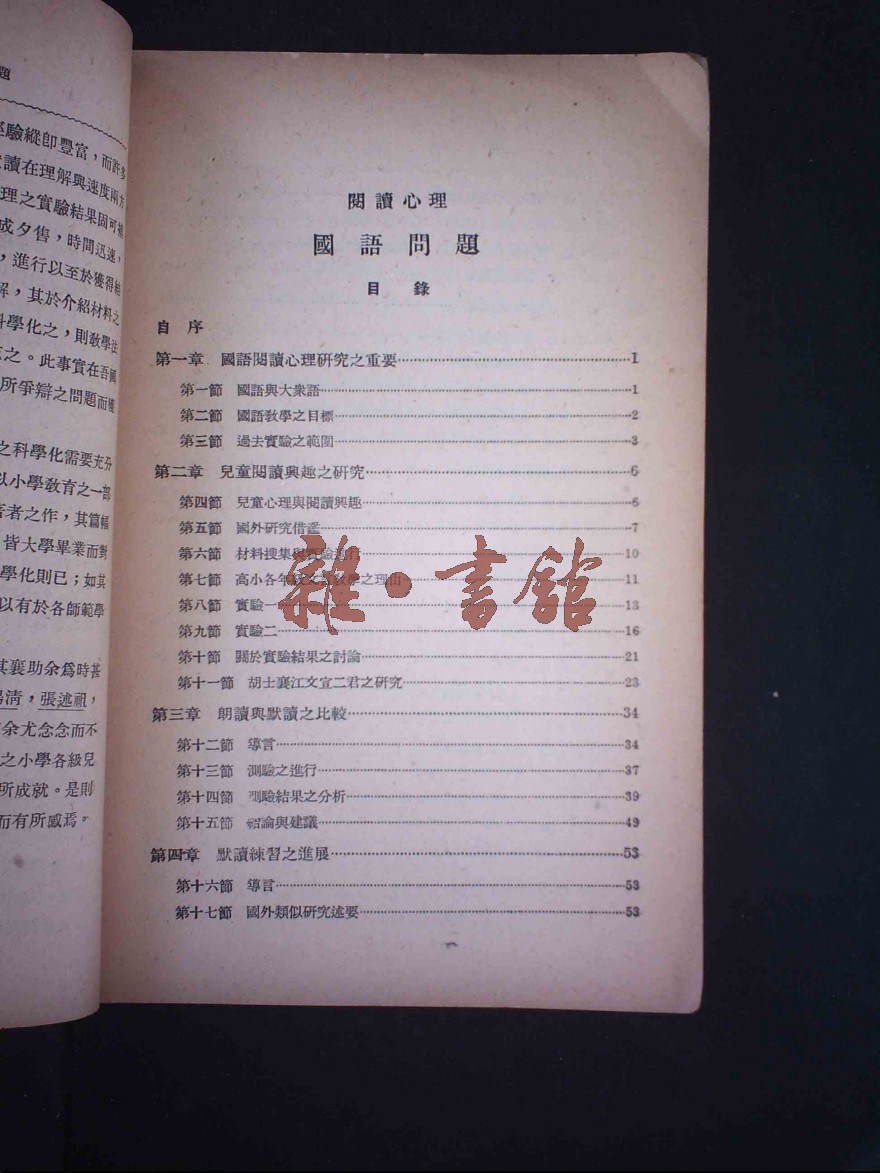 題
驗縱卽豐富，而許多
讀在理解與速度兩方
理之實驗結果固可補
成夕售，時間迅速，
，進行以至於獲得結
解，其於介紹材料之
科學化之，則敎學法
之。此事實在吾國
所爭辯之問題而獲
之科學化需要充分
以小學敎育之一部
著者之作，其篇幅
皆大學畢業而對
學化則已；如其
以有於各師範學
其襄助余爲時甚
淸，張述祖，
余尤念念而不
之小學各級兒
所成就。是則
而有所感焉。
閱讀心理
國語問題
目錄
自序
第一章 國語閱讀心理研究之重要 1
第一節 國語與大衆語 1
第二節 國語敎學之目標 2
第三節 過去實驗之範圍 3
第二章 兒童閱讀興趣之研究 6
第四節 兒童心理與閱讀興趣 6
第五節 國外研究借鑑 7
第六節 材料搜集與實驗進行 10
第七節 高小各年級文言敎學之理由 11
第八節 實驗一 13
第九節 實驗二 16
第十節 關於實驗結果之討論 21
第十一節 胡士襄江文宣二君之研究 23
第三章 朗讀與默讀之比較 34
第十二節 導言 34
第十三節 測驗之進行 37
第十四節 測驗結果之分析 39
第十五節 結論與建議 49
第四章 默讀練習之進展 53
第十六節 導言 53
第十七節 國外類似研究述要 53
雜·書館